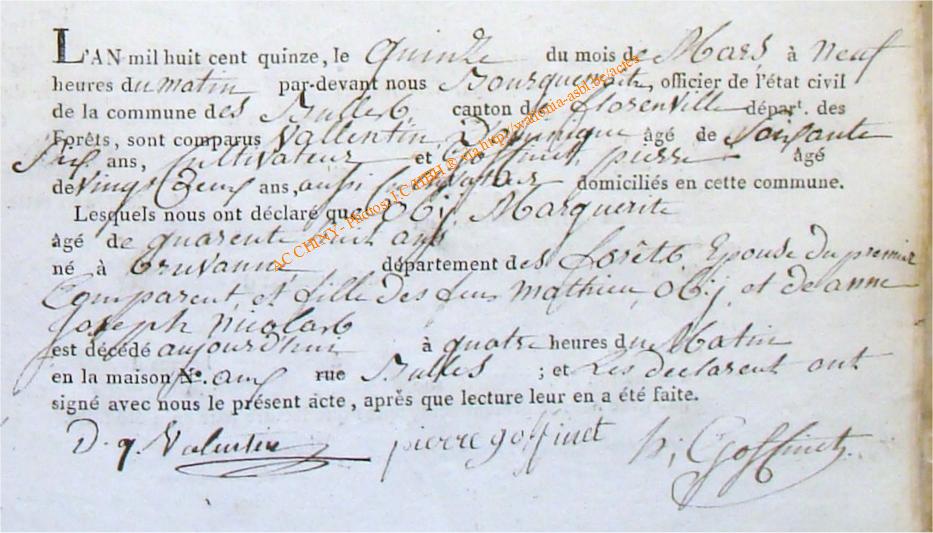 L'AN mil huit cent quinze, le quinze du mois de Mars à neuf
heures du matin par-devant nous officier de l'état civil
de la commune des Bulles canton de florenville départ. des
Forêts, sont comparus Vallentin, Dominique âgé de Soixante
ans, cultivateur et Goffinet pierre âgé
de vingt deux ans, aussi cultivateur domiciliés en cette commune.
Lesquels nous ont déclaré que Obij Marguerite
âgé de quarente huit ans
né à département des forêts Epouse du premier
Comparent et fille des feux mathieu Obij et de anne
joseph nicolas
est décédé aujourd'hui à quatre heures du Matin
en la maison N°. rue Bulles ; et Les declarent ont
signé avec nous le présent acte, après que lecture leur en a été faite.
D. q. Valentin pierre goffinet h; Goffinet
ACCHINY - Photos J.CAMEH @ via http://wallonia-asbl.be/actes